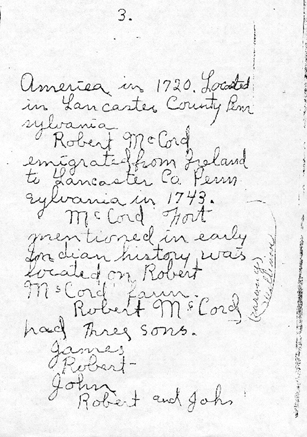 3.
America in 1720. Located
in Lancaster County Penn
sylvania.
Robert McCord
emigrated from Ireland
to Lancaster Co Penn
sylvania in 1743.
McCord Fort
mentioned in early
Indian history was
located on Robert
McCord farm.
Robert McCord
had three sons.
James
Robert
John
Robert and John